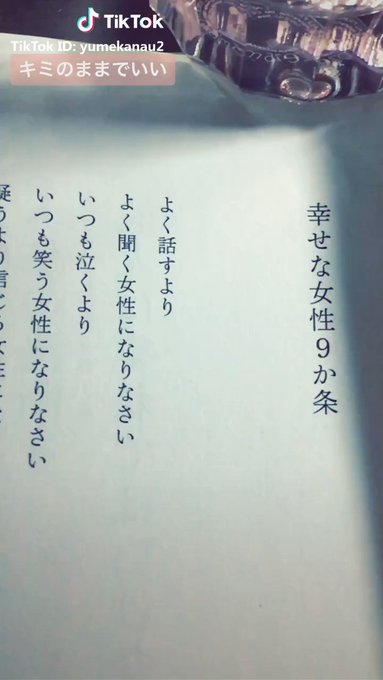 TikTok
TikTok ID: yumekanau2
キミのままでいい
幸せな女性9か条
よく話すより
よく聞く女性になりなさい
いつも泣くより
いつも笑う女性になりなさい